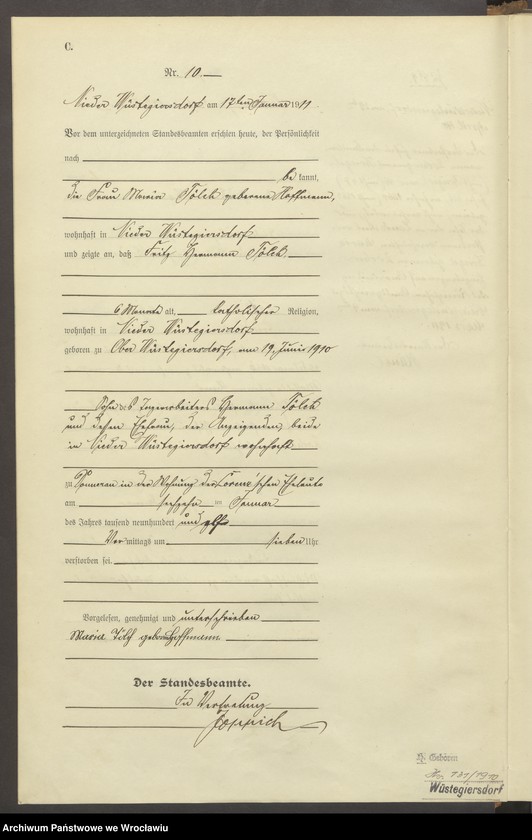 C.
Nr. 10.
Nieder Wüstegiersdorf am 17ten Januar 1911
Vor dem unterzeichneten Standesbeamten erschien heute, der Persönlichkeit
nach
be kannt,
die Frau Maria Tölch geborene Hoffmann,
wohnhaft in Nieder Wüstegiersdorf
und zeigte an, daß Fritz Hermann Tölch
6 Monate alt, katholischer Religion,
wohnhaft in Nieder Wüstegiersdorf
geboren zu Ober Wüstegiersdorf, am 19. Junis 1910
Sohn des Hermann Tölch
und dessen Ehefrau, der Anzeigenden, beide
in Nieder Wüstegiersdorf wohnhaft
zu Donnerau in der Wohnung der Eheleute
am sechzehn ten Januar
des Jahres tausend neunhundert und elf
Vor mittags um sieben Uhr
verstorben sei.
Vorgelesen, genehmigt und unterschrieben
Maria Tölch geborene Hoffmann
Der Standesbeamte.
In Vertretung
Geboren
Nr. 131/1910
Wüstegiersdorf
Archiwum Państwowe we Wrocławiu